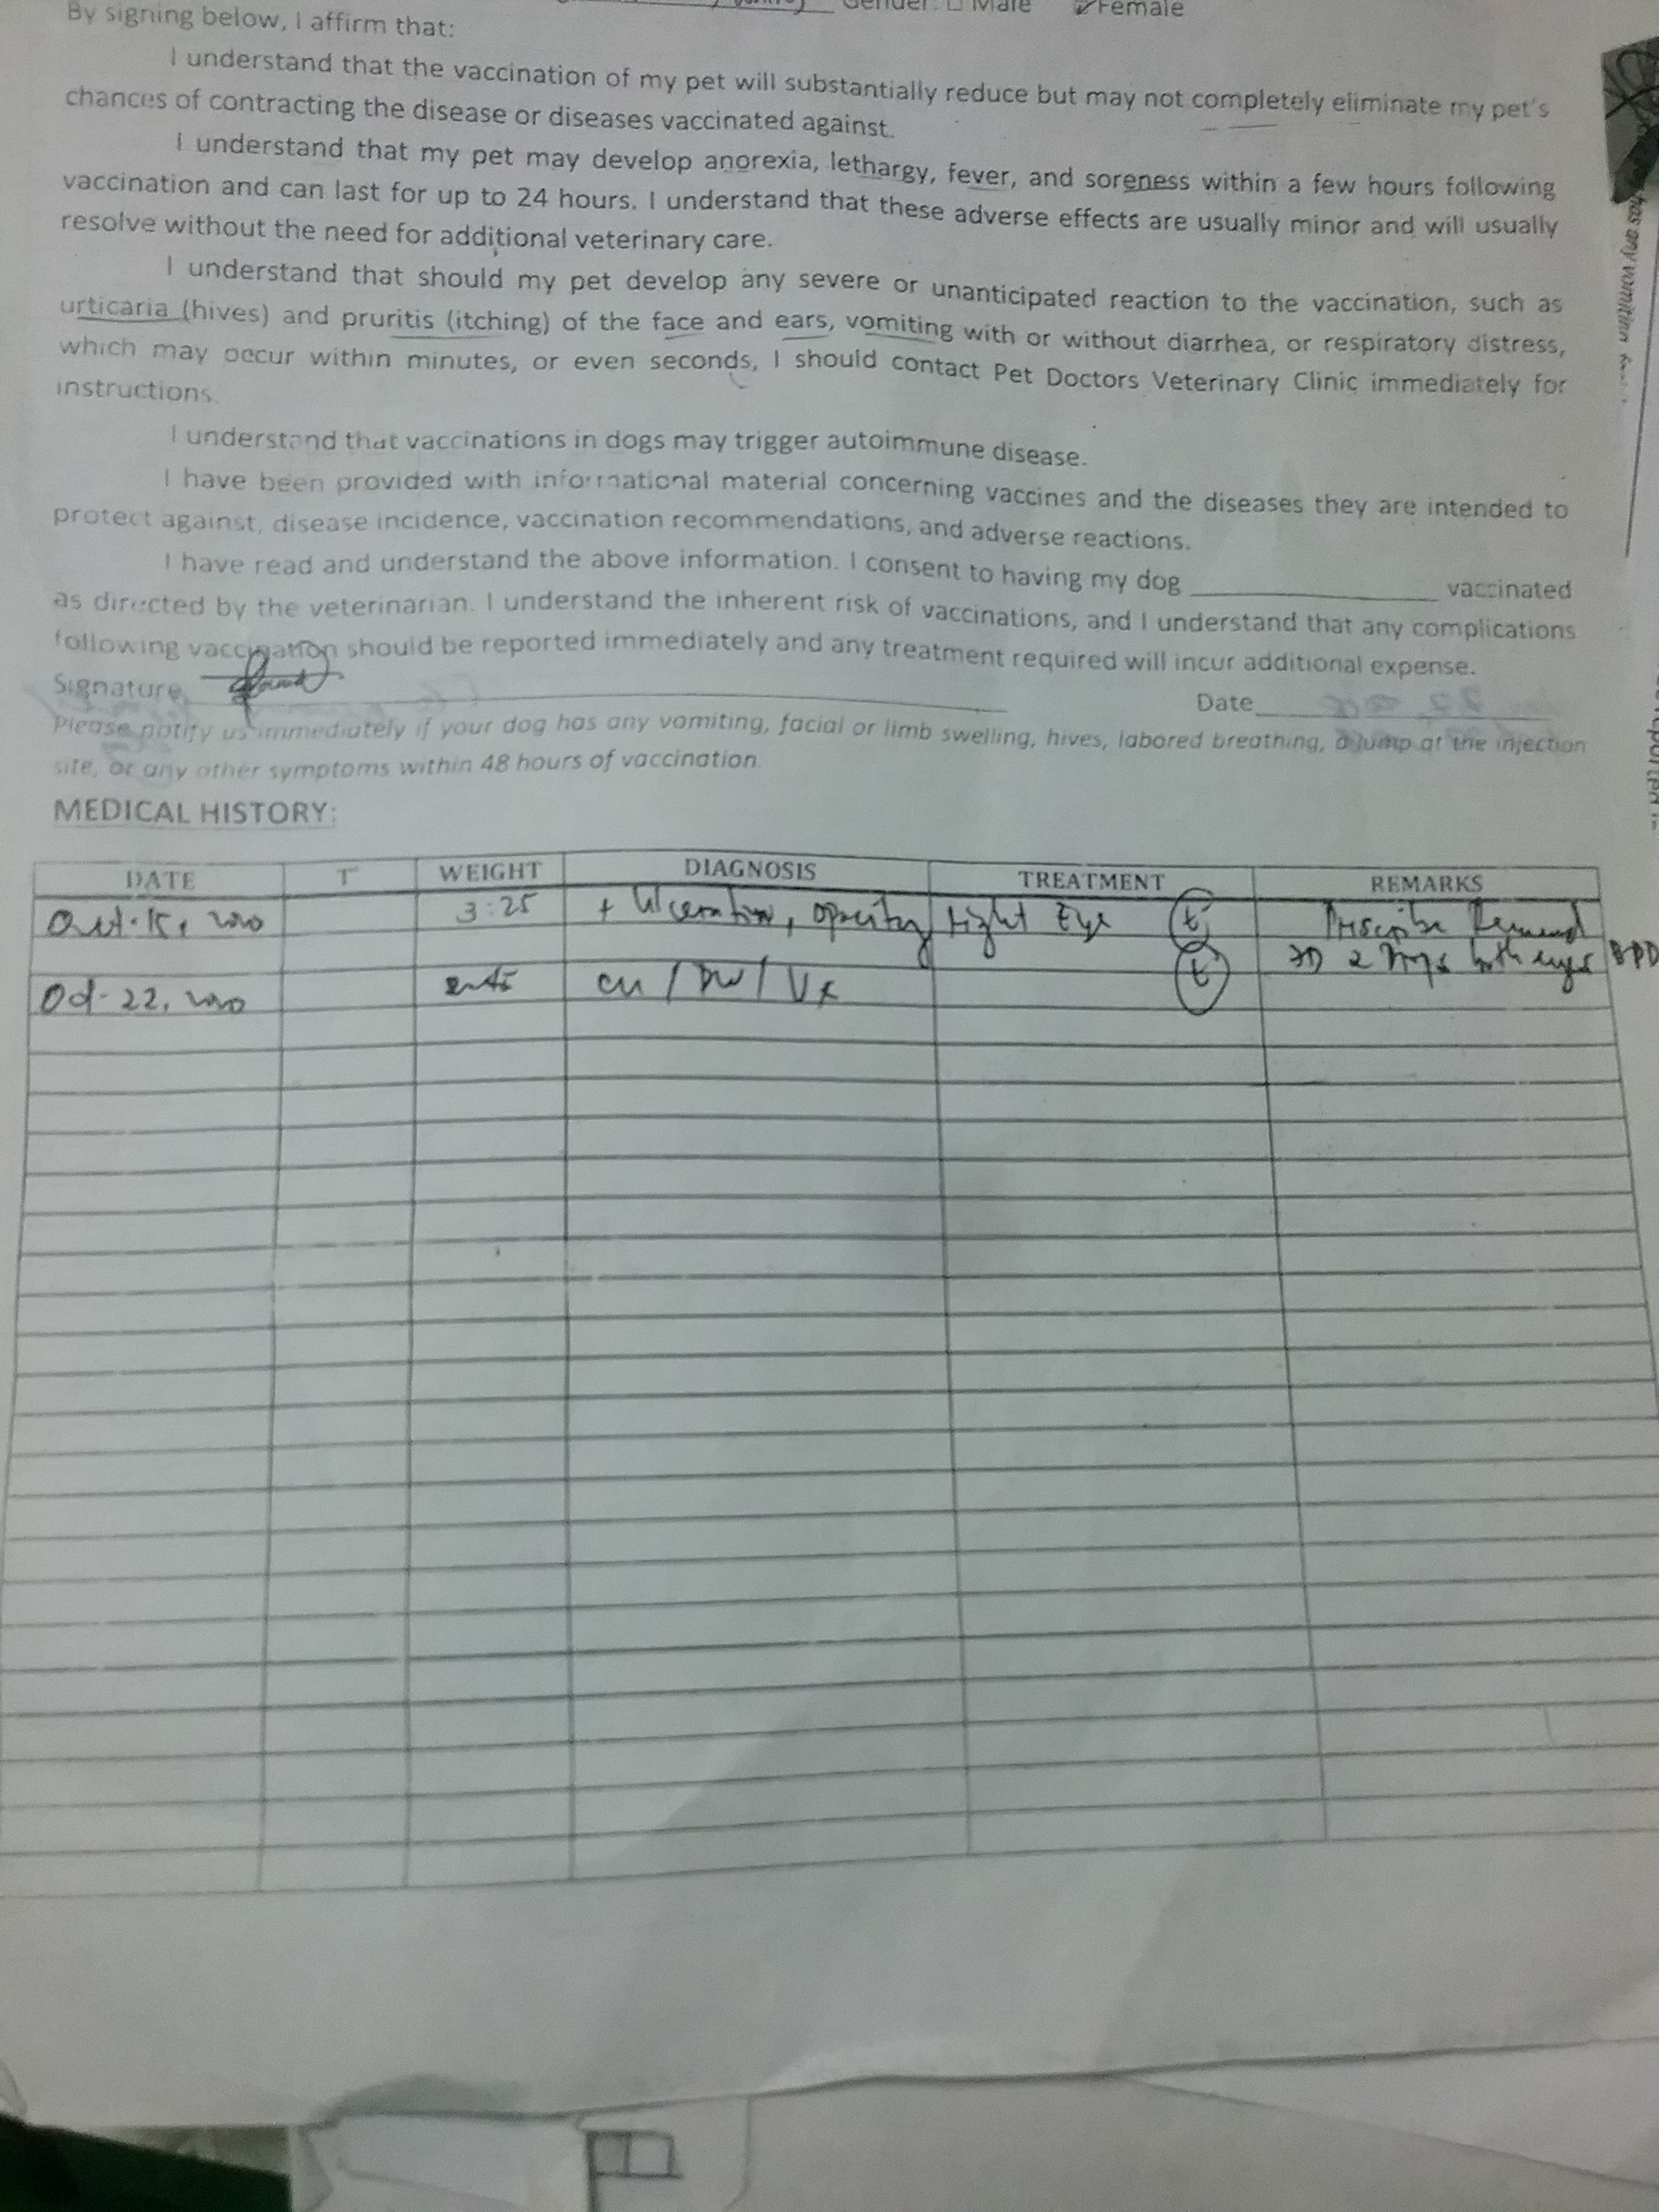 Gender: □ Male Female
By signing below, I affirm that:
I understand that the vaccination of my pet will substantially reduce but may not completely eliminate my pet's
chances of contracting the disease or diseases vaccinated against.
I understand that my pet may develop anorexia, lethargy, fever, and soreness within a few hours following
vaccination and can last for up to 24 hours. I understand that these adverse effects are usually minor and will usually
resolve without the need for additional veterinary care.
I understand that should my pet develop any severe or unanticipated reaction to the vaccination, such as
urticaria (hives) and pruritis (itching) of the face and ears, vomiting with or without diarrhea, or respiratory distress,
which may occur within minutes, or even seconds, I should contact Pet Doctors Veterinary Clinic immediately for
instructions.
I understand that vaccinations in dogs may trigger autoimmune disease.
I have been provided with informational material concerning vaccines and the diseases they are intended to
protect against, disease incidence, vaccination recommendations, and adverse reactions.
I have read and understand the above information. I consent to having my dog ____________ vaccinated
as directed by the veterinarian. I understand the inherent risk of vaccinations, and I understand that any complications
following vaccination should be reported immediately and any treatment required will incur additional expense.
Signature Date
Please notify us immediately if your dog has any vomiting, facial or limb swelling, hives, labored breathing, a lump at the injection
site, or any other symptoms within 48 hours of vaccination.
MEDICAL HISTORY:
DATE T WEIGHT DIAGNOSIS TREATMENT REMARKS
3:25 + Ulceration, opacity right Eye t
2 both eyes
Oct-22, t
has any vomiting